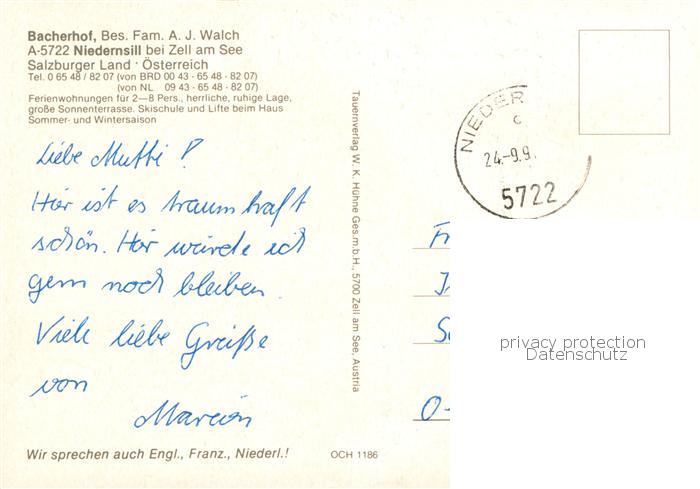 Bacherhof, Bes. Fam. A. J. Walch
A-5722 Niedernsill bei Zell am See
Salzburger Land · Österreich
Tel. 0 65 48 / 82 07 (von BRD 00 43 - 65 48 - 82 07)
(von NL 09 43 - 65 48 - 82 07)
Ferienwohnungen für 2—8 Pers., herrliche, ruhige Lage,
große Sonnenterrasse. Skischule und Lifte beim Haus
Sommer- und Wintersaison
Liebe Mutti!
Hier ist es traumhaft
schön. Hier würde ich
gern noch bleiben.
Viele liebe Grüße
von
Marion
Wir sprechen auch Engl., Franz., Niederl.!
OCH 1186
Tauernverlag W. K. Hühne Ges.m.b.H., 5700 Zell am See, Austria
NIEDER
c
24.-9.9
5722
privacy protection
Datenschutz
O-